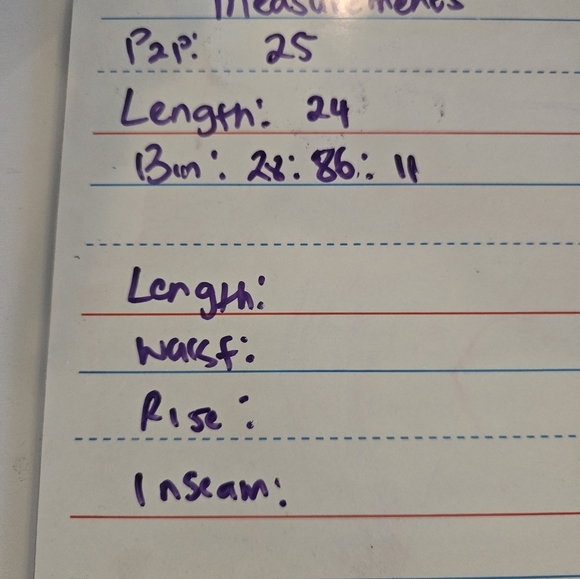 Measurements
P2P: 25
Length: 24
Bin: 28: 86: 11
Length:
Waist:
Rise:
Inseam: